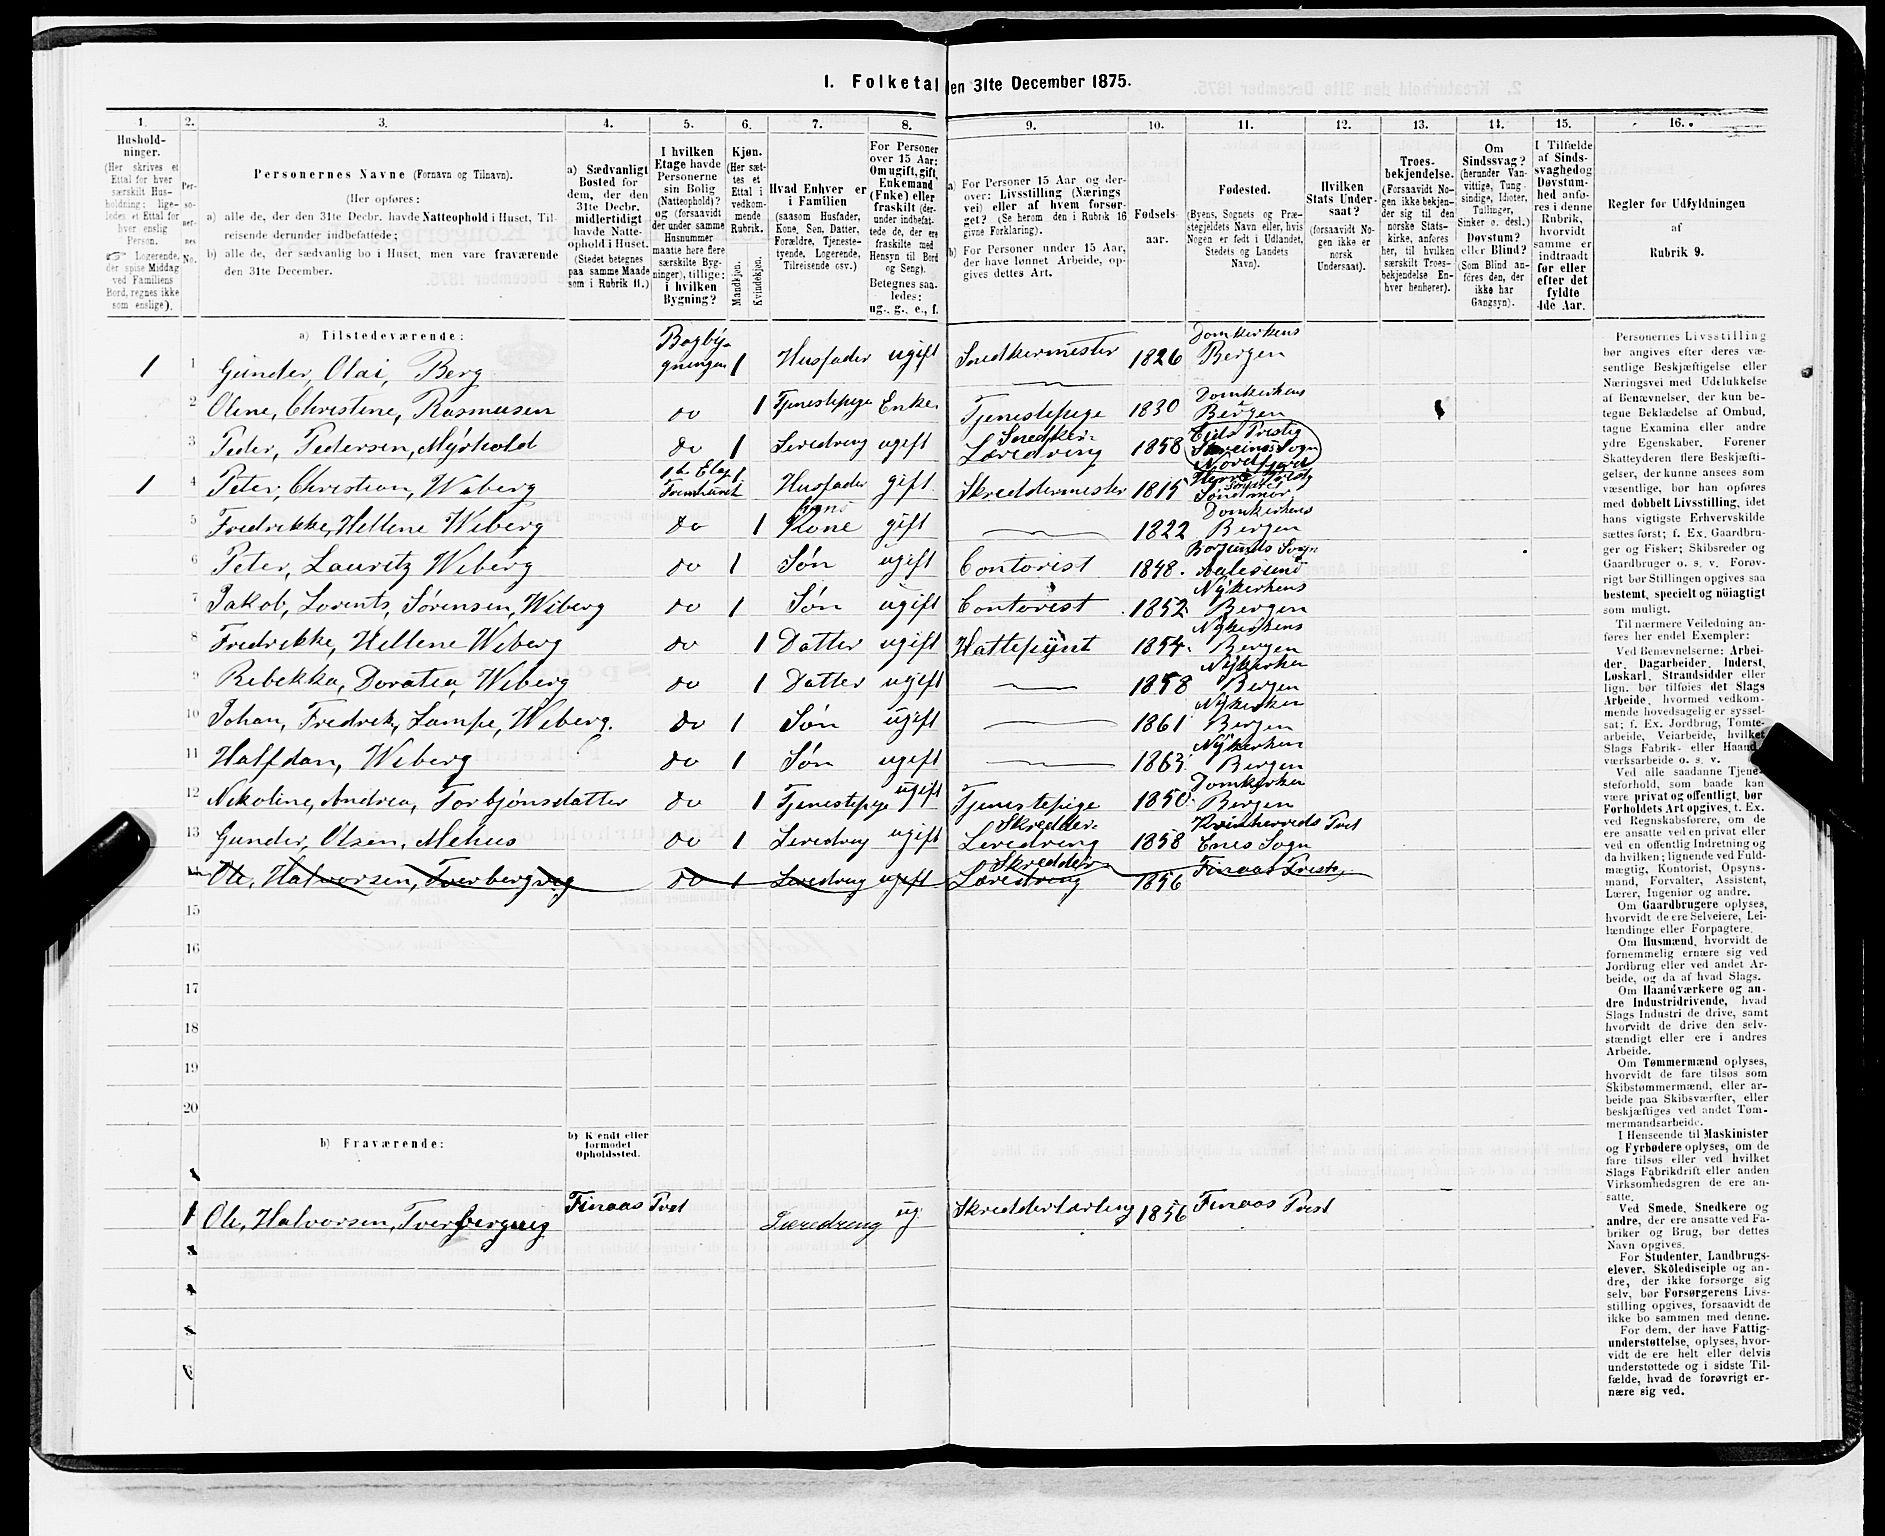 1. Folketal den 31te December 1875.
1. 2. 3. 4. 5. 6. 7. 8. 9. 10. 11. 12. 13. 14. 15. 16.
Hushold-
ninger.
(Her skrives et
Ettal for hver
særskilt Hus-
holdning; lige-
ledes et Ettal for
hver enslig
Person.
☞ Logerende,
der spise Middag
ved Familiens
Bord, regnes ikke
som enslige).
Per-
so-
ner-
nes
No.
Personernes Navne (Fornavn og Tilnavn).
(Her opføres:
a) alle de, der den 31te Decbr. havde Natteophold i Huset, Til-
reisende derunder indbefattede;
b) alle de, der sædvanlig bo i Huset, men vare fraværende
den 31te December.
a) Sædvanligt
Bosted for
dem, der den
31te Decbr.
midlertidigt
havde Natte-
ophold i Huset.
(Stedet betegnes
paa samme Maade
som i Rubrik 11.)
I hvilken
Etage havde
Personerne
sin Bolig
(Natteophold)?
og (forsaavidt
der under samme
Husnummer
maatte høre flere
særskilte Byg-
ninger), tillige:
i hvilken
Bygning?
Kjøn.
(Her sæt-
tes et
Ettal i
vedkom-
mende
Rubrik.
Mandkjøn.
Kvindekjøn.
Hvad Enhver er
i Familien
(saasom Husfader,
Kone, Søn, Datter,
Forældre, Tjeneste-
tyende, Logerende,
Tilreisende osv.)
For Personer
over 15 Aar:
Om ugift, gift,
Enkemand
(Enke) eller
fraskilt (der-
under indbefat-
tede de, der ere
fraskilte med
Hensyn til Bord
og Seng).
Betegnes saa-
ledes:
ug., g., e., f.
a) For Personer 15 Aar og der-
over: Livsstilling (Nærings
vei) eller af hvem forsør-
get? (Se herom den i Rubrik 16
givne Forklaring).
b) For Personer under 15 Aar,
der have lønnet Arbeide, op-
gives dettes Art.
Fødsels-
aar.
Fødested.
(Byens, Sognets og Præ-
stegjeldets Navn eller, hvis
Nogen er født i Udlandet,
Stedets og Landets
Navn).
Hvilken
Stats Under-
saat?
(forsaavidt No-
gen ikke er
norsk
Undersaat).
Troes-
bekjendelse.
(Forsaavidt No-
gen ikke bekjen-
der sig til den
norske Stats-
kirke, anføres
her, til hvilken
særskilt Troes-
bekjendelse En-
hver henhører).
Om
Sindssvag?
(herunder Van-
vittige, Tung-
sindige, Idioter,
Tullinger,
Sinker o. desl.)
Døvstum?
eller Blind?
(Som Blind an-
føres den, der
ikke har
Gangsyn).
I Tilfælde
af Sinds-
svaghed og
Døvstum-
hed anfø-
res i denne
Rubrik,
hvorvidt
samme er
indtraadt
før eller
efter det
fyldte
4de Aar.
Regler for Udfyldningen
af
Rubrik 9.
a) Tilstedeværende:
1 1 Gunder, Olai, Berg Bagby-gningen 1 Husfader ugift Snedkermester 1826 Domkirkens Bergen
2 Oline, Christine, Rasmusen do 1 Tjenestepige Enke. Tjenestepige 1830 Domkirkens Bergen
3 Peder, Pedersen, Myrhold do 1 Leredreng ugift Snedker-Læredreng 1858 Eids Prestig Sogn Nordfjord
1 4 Peter, Christian, Wiberg 1de Etag Fremhuset 1 Husfader gift Skreddermester 1815 Søndmør
5 Fredrikke, Hellene Weberg do 1 hans Kone gift 1822 Domkirkens Bergen
6 Peter, Lauritz Weberg do 1 Søn ugift Contorist 1848. Borgunds Sogn Aalesund
7 Jakob, Lorents, Sørensen, Wiberg do 1 Søn ugift Contorist 1852. Nykirkens Bergen
8 Fredrikke, Hellene Weberg do 1 Datter ugift Hattepynt 1854. Nykirkens Bergen
9 Rebekka, Doratea, Weberg do 1 Datter ugift 1858 Nykirken Bergen
10 Johan, Fredrek, Lampe, Weberg. do 1 Søn ugift 1861 Nykirken Bergen
11 Halfdan, Weberg do 1 Søn ugift 1863. Nykirken Bergen
12 Nekoline, Andrea, Torbjønsdatter do 1 Tjenestepige ugift Tjenestepige 1850. Domkirken Bergen
13 Gunder, Olsen, Mehus do 1 Leredreng ugift Skredder-Leredreng 1858 Kvinherreds Prst Enes Sogn
Ole, Halvorsen, Tverbergvig do 1 Leredreng ugift Skredder Læredreng 1856 Finaas Preste
15
16
17
18
19
20
b) Fraværende:
b) Kjendt eller
formodet
Opholdssted.
1 Ole, Halvorsen, Tverbergvig Finaas Prst Læredreng ug. Skredderlærling 1856 Finaas Prst
6
Personernes Livsstilling
bør angives efter deres væ-
sentlige Beskjæftigelse eller
Næringsvei med Udelukkelse
af Benævnelser, der kun be-
tegne Beklædelse af Ombud,
tagne Examina eller andre
ydre Egenskaber. Forener
Skatteyderen flere Beskjæfti-
gelser, der kunne ansees som
væsentlige, bør han opføres
med dobbelt Livsstilling, idet
hans vigtigste Erhvervskilde
sættes først; f. Ex. Gaardbru-
ger og Fisker; Skibsreder og
Gaardbruger o. s. v. Forøv-
rigt bør Stillingen opgives saa
bestemt, specielt og nöiagtigt
som muligt.
Til nærmere Veiledning an-
føres her endel Exempler:
Ved Benævnelserne: Arbei-
der, Dagarbeider, Inderst,
Løskarl, Strandsidder eller
lign. bør tilføies det Slags
Arbeide, hvormed vedkom-
mende hovedsagelig er syssel-
sat; f. Ex. Jordbrug, Tomte-
arbeide, Veiarbeide, hvilket
Slags Fabrik- eller Haand-
værksarbeide o. s. v.
Ved alle saadanne Tjene-
steforhold, som baade kan
være privat og offentligt, bør
Forholdets Art opgives, t. Ex.
ved Regnskabsførere, om de
ere ansatte ved en privat eller
ved en offentlig Indretning og
da hvilken; lignende ved Fuld-
mægtig, Kontorist, Opsyns-
mand, Forvalter, Assistent,
Lærer, Ingeniør og andre.
Om Gaardbrugere oplyses,
hvorvidt de ere Selveiere, Lei-
lændinge eller Forpagtere.
Om Husmænd, hvorvidt de
fornemmelig ernære sig ved
Jordbrug eller ved andet Ar-
beide, og da af hvad Slags.
Om Haandværkere og an-
dre Industridrivende, hvad
Slags Industri de drive, samt
hvorvidt de drive den selv-
stændigt eller ere i andres
Arbeide.
Om Tømmermænd oplyses,
hvorvidt de fare tilsøs som
Skibstømmermænd, eller ar-
beide paa Skibsværfter, eller
beskjæftiges ved andet Tøm-
mermandsarbeide.
I Henseende til Maskinister
og Fyrbødere oplyses, om de
fare tilsøs eller ved hvilket
Slags Fabrikdrift eller anden
Virksomhedsgren de ere an-
satte.
Ved Smede, Snedkere og
andre, der ere ansatte ved Fa-
briker og Brug, bør dettes
Navn opgives.
For Studenter, Landbrugs-
elever, Skoledisciple og an-
dre, der ikke forsørge sig
selv, bør Forsørgerens Livs-
stilling opgives, forsaavidt de
ikke bo sammen med denne.
For dem, der have Fattig-
understøttelse, oplyses, hvor-
vidt de ere helt eller delvis
understøttede og i sidste Til-
fælde, hvad de forøvrigt er-
nære sig ved.